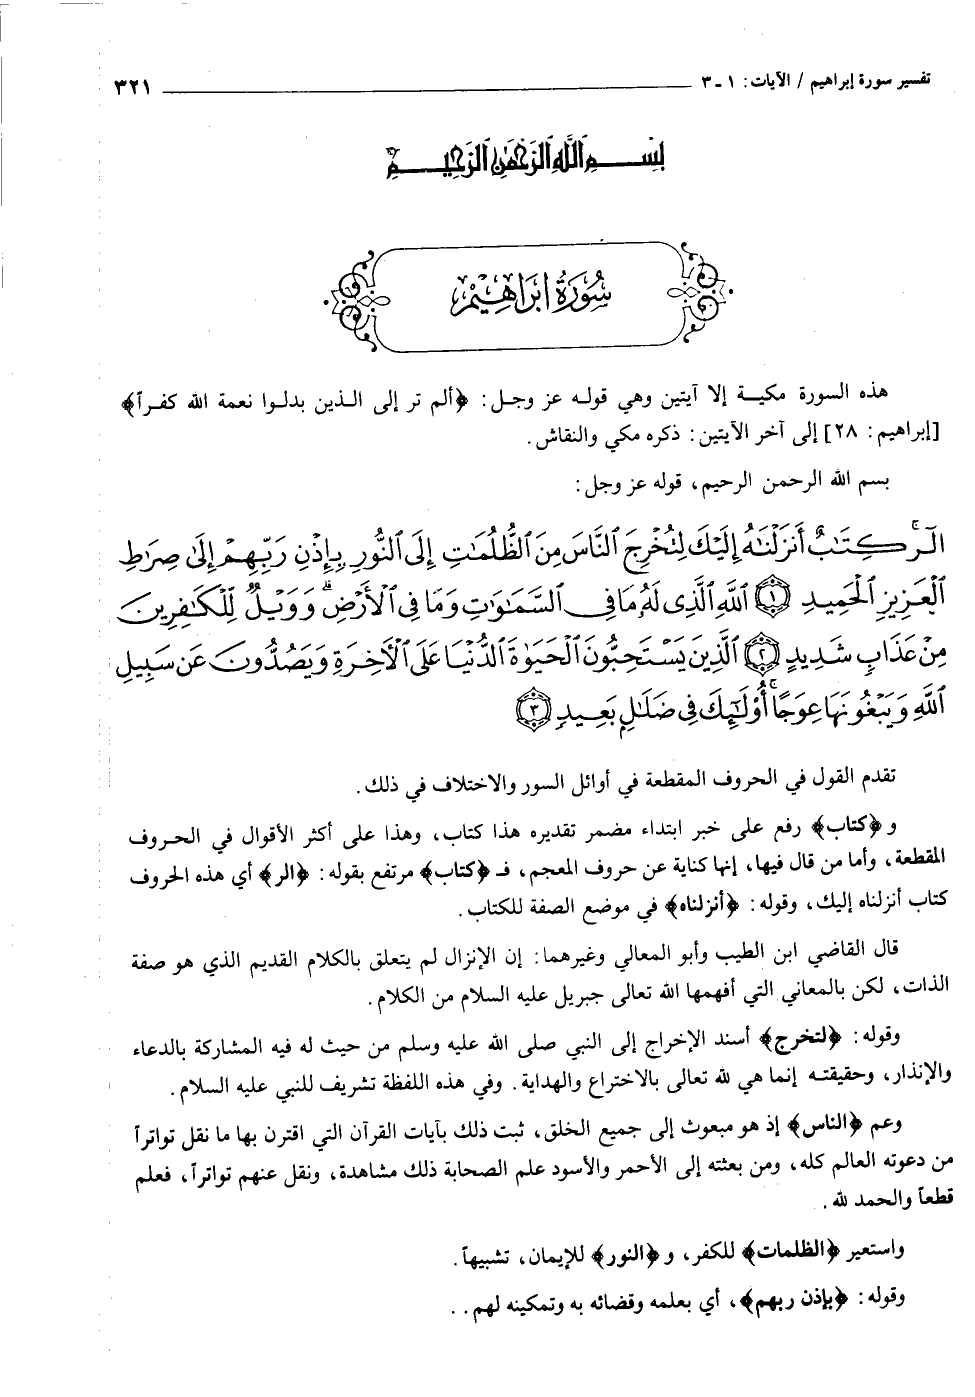 تفسير سورة إبراهيم / الآيات: ١ - ٣ ٣٢١
بسم الله الرحمن الرحيم
سورة إبراهيم
هذه السورة مكية إلا آيتين وهي قوله عز وجل: ﴿ألم تر إلى الذين بدلوا نعمة الله كفراً﴾
[إبراهيم: ٢٨] إلى آخر الآيتين: ذكره مكي والنقاش.
بسم الله الرحمن الرحيم، قوله عز وجل:
الٓر ۚ كِتَٰبٌ أَنزَلْنَٰهُ إِلَيْكَ لِتُخْرِجَ النَّاسَ مِنَ ٱلظُّلُمَٰتِ إِلَى ٱلنُّورِ بِإِذْنِ رَبِّهِمْ إِلَىٰ صِرَٰطِ
ٱلْعَزِيزِ ٱلْحَمِيدِ ﴿١﴾ ٱللَّهِ ٱلَّذِى لَهُۥ مَا فِى ٱلسَّمَٰوَٰتِ وَمَا فِى ٱلْأَرْضِ ۗ وَوَيْلٌ لِّلْكَٰفِرِينَ
مِنْ عَذَابٍ شَدِيدٍ ﴿٢﴾ ٱلَّذِينَ يَسْتَحِبُّونَ ٱلْحَيَوٰةَ ٱلدُّنْيَا عَلَى ٱلْأَخِرَةِ وَيَصُدُّونَ عَن سَبِيلِ
ٱللَّهِ وَيَبْغُونَهَا عِوَجًا ۚ أُوْلَٰٓئِكَ فِى ضَلَٰلٍۭ بَعِيدٍ ﴿٣﴾
تقدم القول في الحروف المقطعة في أوائل السور والاختلاف في ذلك.
و﴿كتاب﴾ رفع على خبر ابتداء مضمر تقديره هذا كتاب، وهذا على أكثر الأقوال في الحروف
المقطعة، وأما من قال فيها، إنها كناية عن حروف المعجم، فـ ﴿كتاب﴾ مرتفع بقوله: ﴿الر﴾ أي هذه الحروف
كتاب أنزلناه إليك، وقوله: ﴿أنزلناه﴾ في موضع الصفة للكتاب.
قال القاضي ابن الطيب وأبو المعالي وغيرهما: إن الإنزال لم يتعلق بالكلام القديم الذي هو صفة
الذات، لكن بالمعاني التي أفهمها الله تعالى جبريل عليه السلام من الكلام.
وقوله: ﴿لتخرج﴾ أسند الإخراج إلى النبي صلى الله عليه وسلم من حيث له فيه المشاركة بالدعاء
والإنذار، وحقيقته إنما هي لله تعالى بالاختراع والهداية. وفي هذه اللفظة تشريف للنبي عليه السلام.
وعم ﴿الناس﴾ إذ هو مبعوث إلى جميع الخلق، ثبت ذلك بآيات القرآن التي اقترن بها ما نقل تواتراً
من دعوته العالم كله، ومن بعثته إلى الأحمر والأسود علم الصحابة ذلك مشاهدة، ونقل عنهم تواتراً، فعلم
قطعاً والحمد لله.
واستعير ﴿الظلمات﴾ للكفر، و﴿النور﴾ للإيمان، تشبيهاً.
وقوله: ﴿بإذن ربهم﴾، أي بعلمه وقضائه به وتمكينه لهم. .